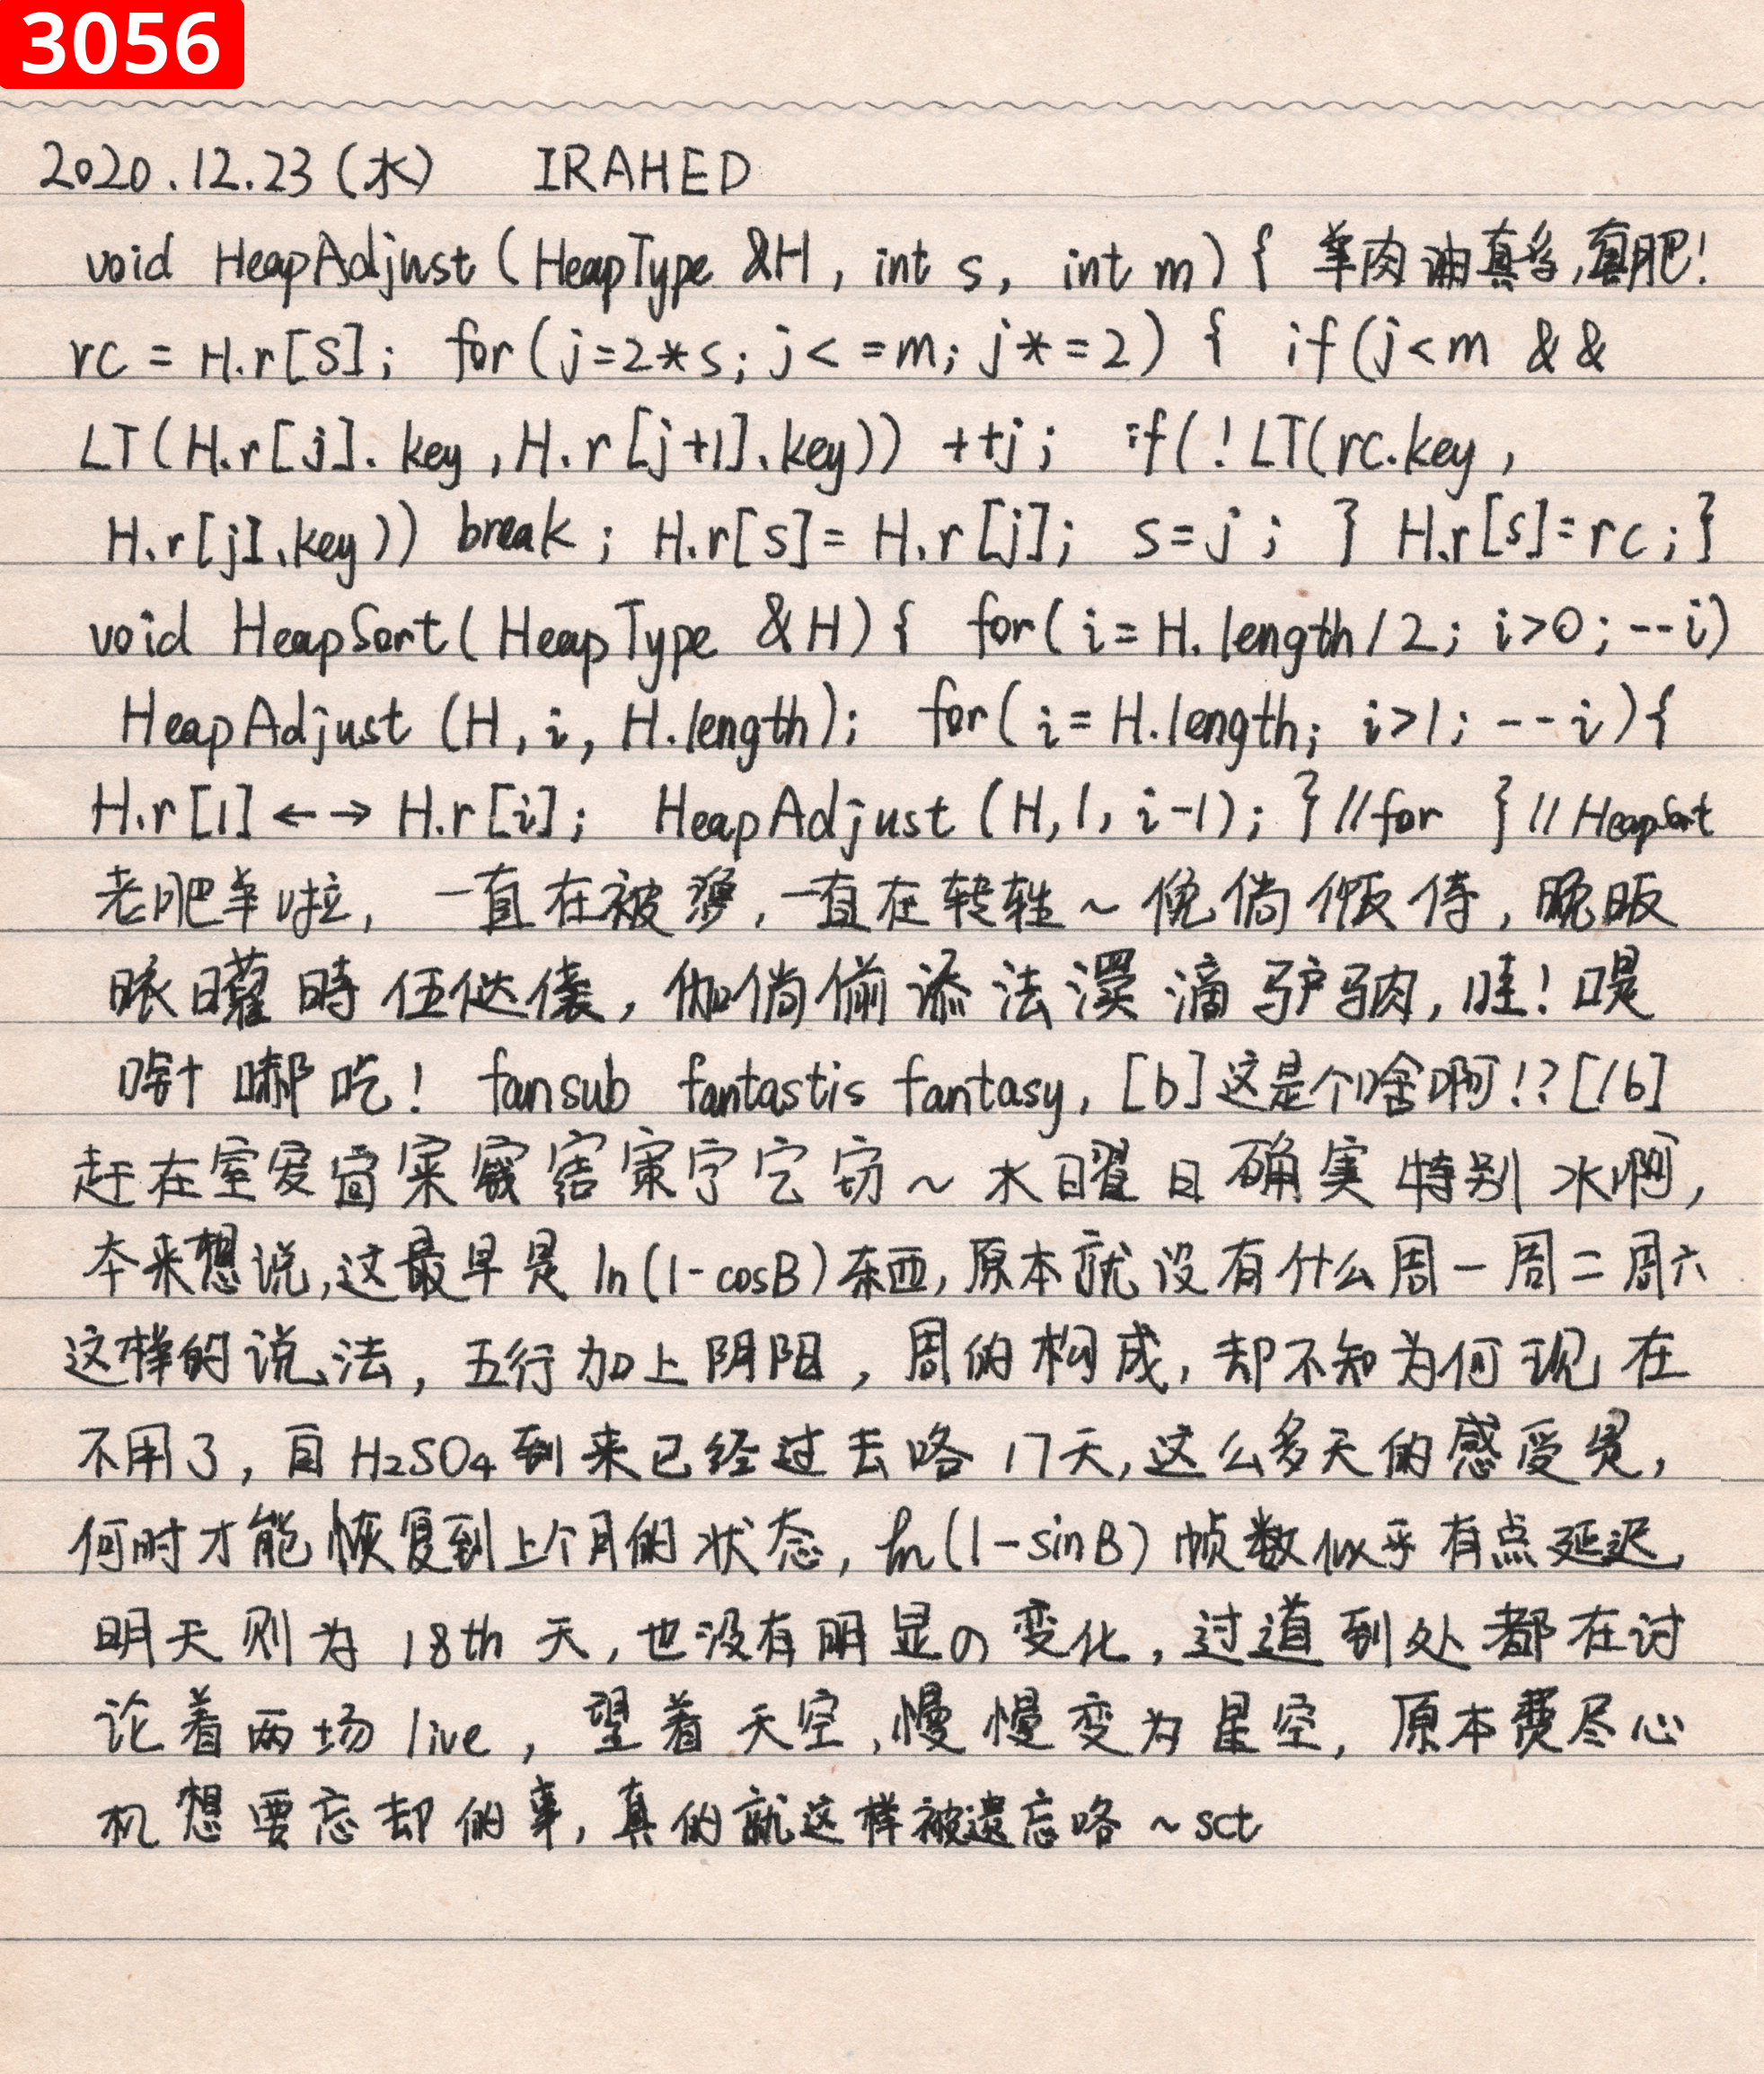 3056
2020.12.23(水) IRAHED
void HeapAdjust(HeapType &H, int s, int m){ 羊肉油真多,真肥!
rc = H.r[S]; for(j=2*s; j<=m; j*=2) { if(j<m &&
LT(H.r[j].key, H.r[j+1].key)) ++j; if(!LT(rc.key,
H.r[j].key)) break; H.r[s]=H.r[j]; s=j; } H.r[s]=rc;}
void HeapSort(HeapType &H){ for(i=H.length/2; i>0; --i)
HeapAdjust(H, i, H.length); for(i=H.length; i>1; --i){
H.r[1]←→H.r[i]; HeapAdjust(H,1,i-1); }//for }//HeapSort
老肥羊啦, 一直在被, 一直在转~倘侍, 晚
曜時伍, 倘偷添法滴驴肉, 哇!
吃! fansub fantastis fantasy, [b]这是个啥啊!?[/b]
赶在室~水曜日确実特别水啊,
本来想说,这最早是ln(1-cosB)东西,原本就没有什么周一周二周六
这样的说法, 五行加上阴阳, 周的构成, 却不知为何现在
不用了, 自H₂SO₄到来已经过去咯17天,这么多天的感受是,
何时才能恢复到上个月的状态, ln(1-sinB)帧数似乎有点延迟,
明天则为18th天,也没有明显の变化,过道到处都在讨
论着两场live, 望着天空,慢慢变为星空, 原本费尽心
机想要忘却的事,真的就这样被遗忘咯~sct